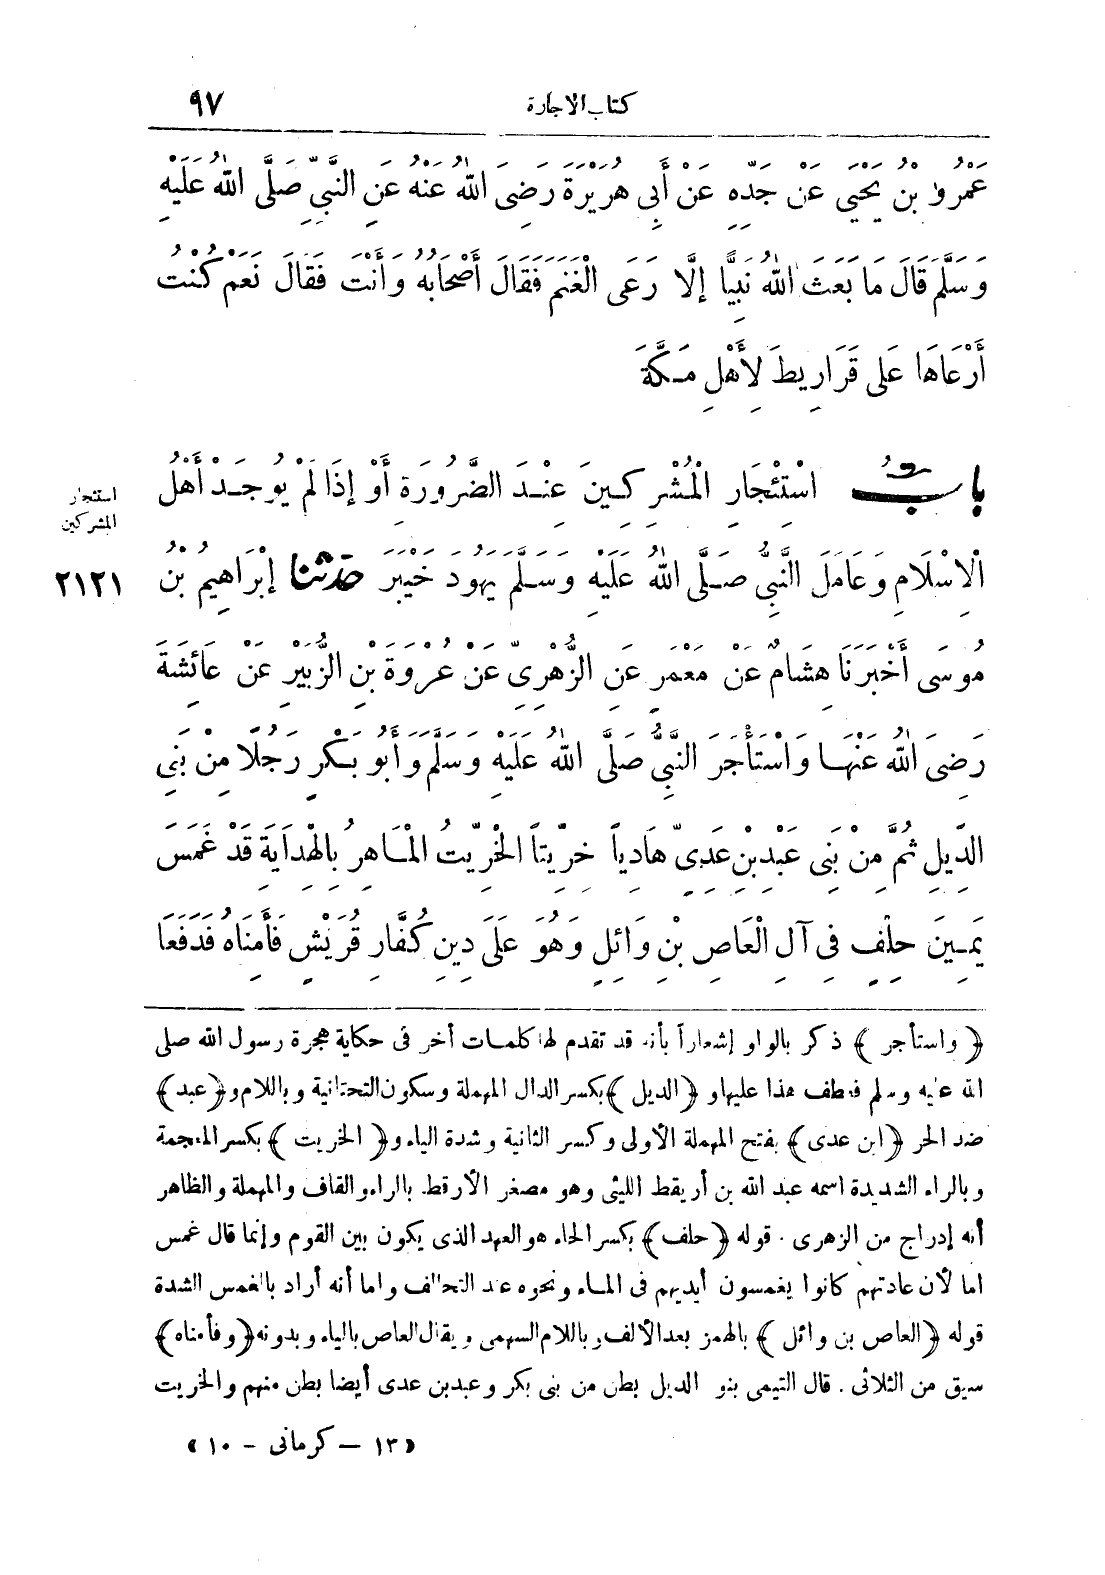 كتاب الاجارة ٩٧
عَمْرُو بْنُ يَحْيَى عَنْ جَدِّهِ عَنْ أَبِى هُرَيْرَةَ رَضِىَ اللهُ عَنْهُ عَنِ النَّبِىِّ صَلَّى اللهُ عَلَيْهِ
وَسَلَّمَ قَالَ مَا بَعَثَ اللهُ نَبِيًّا إِلَّا رَعَى الْغَنَمَ فَقَالَ أَصْحَابُهُ وَأَنْتَ فَقَالَ نَعَمْ كُنْتُ
أَرْعَاهَا عَلَى قَرَارِيطَ لِأَهْلِ مَكَّةَ
بَابُ اسْتِئْجَارِ الْمُشْرِكِينَ عِنْدَ الضَّرُورَةِ أَوْ إِذَا لَمْ يُوجَدْ أَهْلُ
استئجار
المشركين
الْإِسْلَامِ وَعَامَلَ النَّبِىُّ صَلَّى اللهُ عَلَيْهِ وَسَلَّمَ يَهُودَ خَيْبَرَ حَدَّثَنَا إِبْرَاهِيمُ بْنُ
٢١٢١
مُوسَى أَخْبَرَنَا هِشَامٌ عَنْ مَعْمَرٍ عَنِ الزُّهْرِىِّ عَنْ عُرْوَةَ بْنِ الزُّبَيْرِ عَنْ عَائِشَةَ
رَضِىَ اللهُ عَنْهَا وَاسْتَأْجَرَ النَّبِىُّ صَلَّى اللهُ عَلَيْهِ وَسَلَّمَ وَأَبُو بَكْرٍ رَجُلًا مِنْ بَنِى
الدِّيلِ ثُمَّ مِنْ بَنِى عَبْدِ بْنِ عَدِىٍّ هَادِياً خِرِّيتاً الْخِرِّيتُ الْمَاهِرُ بِالْهِدَايَةِ قَدْ غَمَسَ
يَمِينَ حِلْفٍ فِى آلِ الْعَاصِ بْنِ وَائِلٍ وَهُوَ عَلَى دِينِ كُفَّارِ قُرَيْشٍ فَأَمِنَاهُ فَدَفَعَا
﴿ واستأجر ﴾ ذكر بالواو إشعاراً بأنه قد تقدم لها كلمات أخر فى حكاية هجرة رسول الله صلى
الله عليه وسلم فعطف هذا عليها و ﴿ الديل ﴾ بكسر الدال المهملة وسكون التحتانية وباللام و ﴿ عبد ﴾
ضد الحر ﴿ ابن عدى ﴾ بفتح المهملة الأولى وكسر الثانية وشدة الياء و ﴿ الخريت ﴾ بكسر المعجمة
وبالراء الشديدة اسمه عبد الله بن أريقط الليثى وهو مصغر الأرقط بالراء والقاف والمهملة والظاهر
أنه إدراج من الزهرى . قوله ﴿ حلف ﴾ بكسر الحاء هو العهد الذى يكون بين القوم وإنما قال غمس
اما لأن عادتهم كانوا يغمسون أيديهم فى الماء ونحوه عند التحالف واما أنه أراد بالغمس الشدة
قوله ﴿ العاص بن وائل ﴾ بالهمز بعد الألف وباللام السهمى ويقال العاص بالياء وبدونه ﴿ وفأمناه ﴾
سيق من الثلاثى . قال التيمى بنو الديل بطن من بنى بكر وعبد بن عدى أيضا بطن منهم والخريت
« ١٣ – كرمانى - ١٠ »